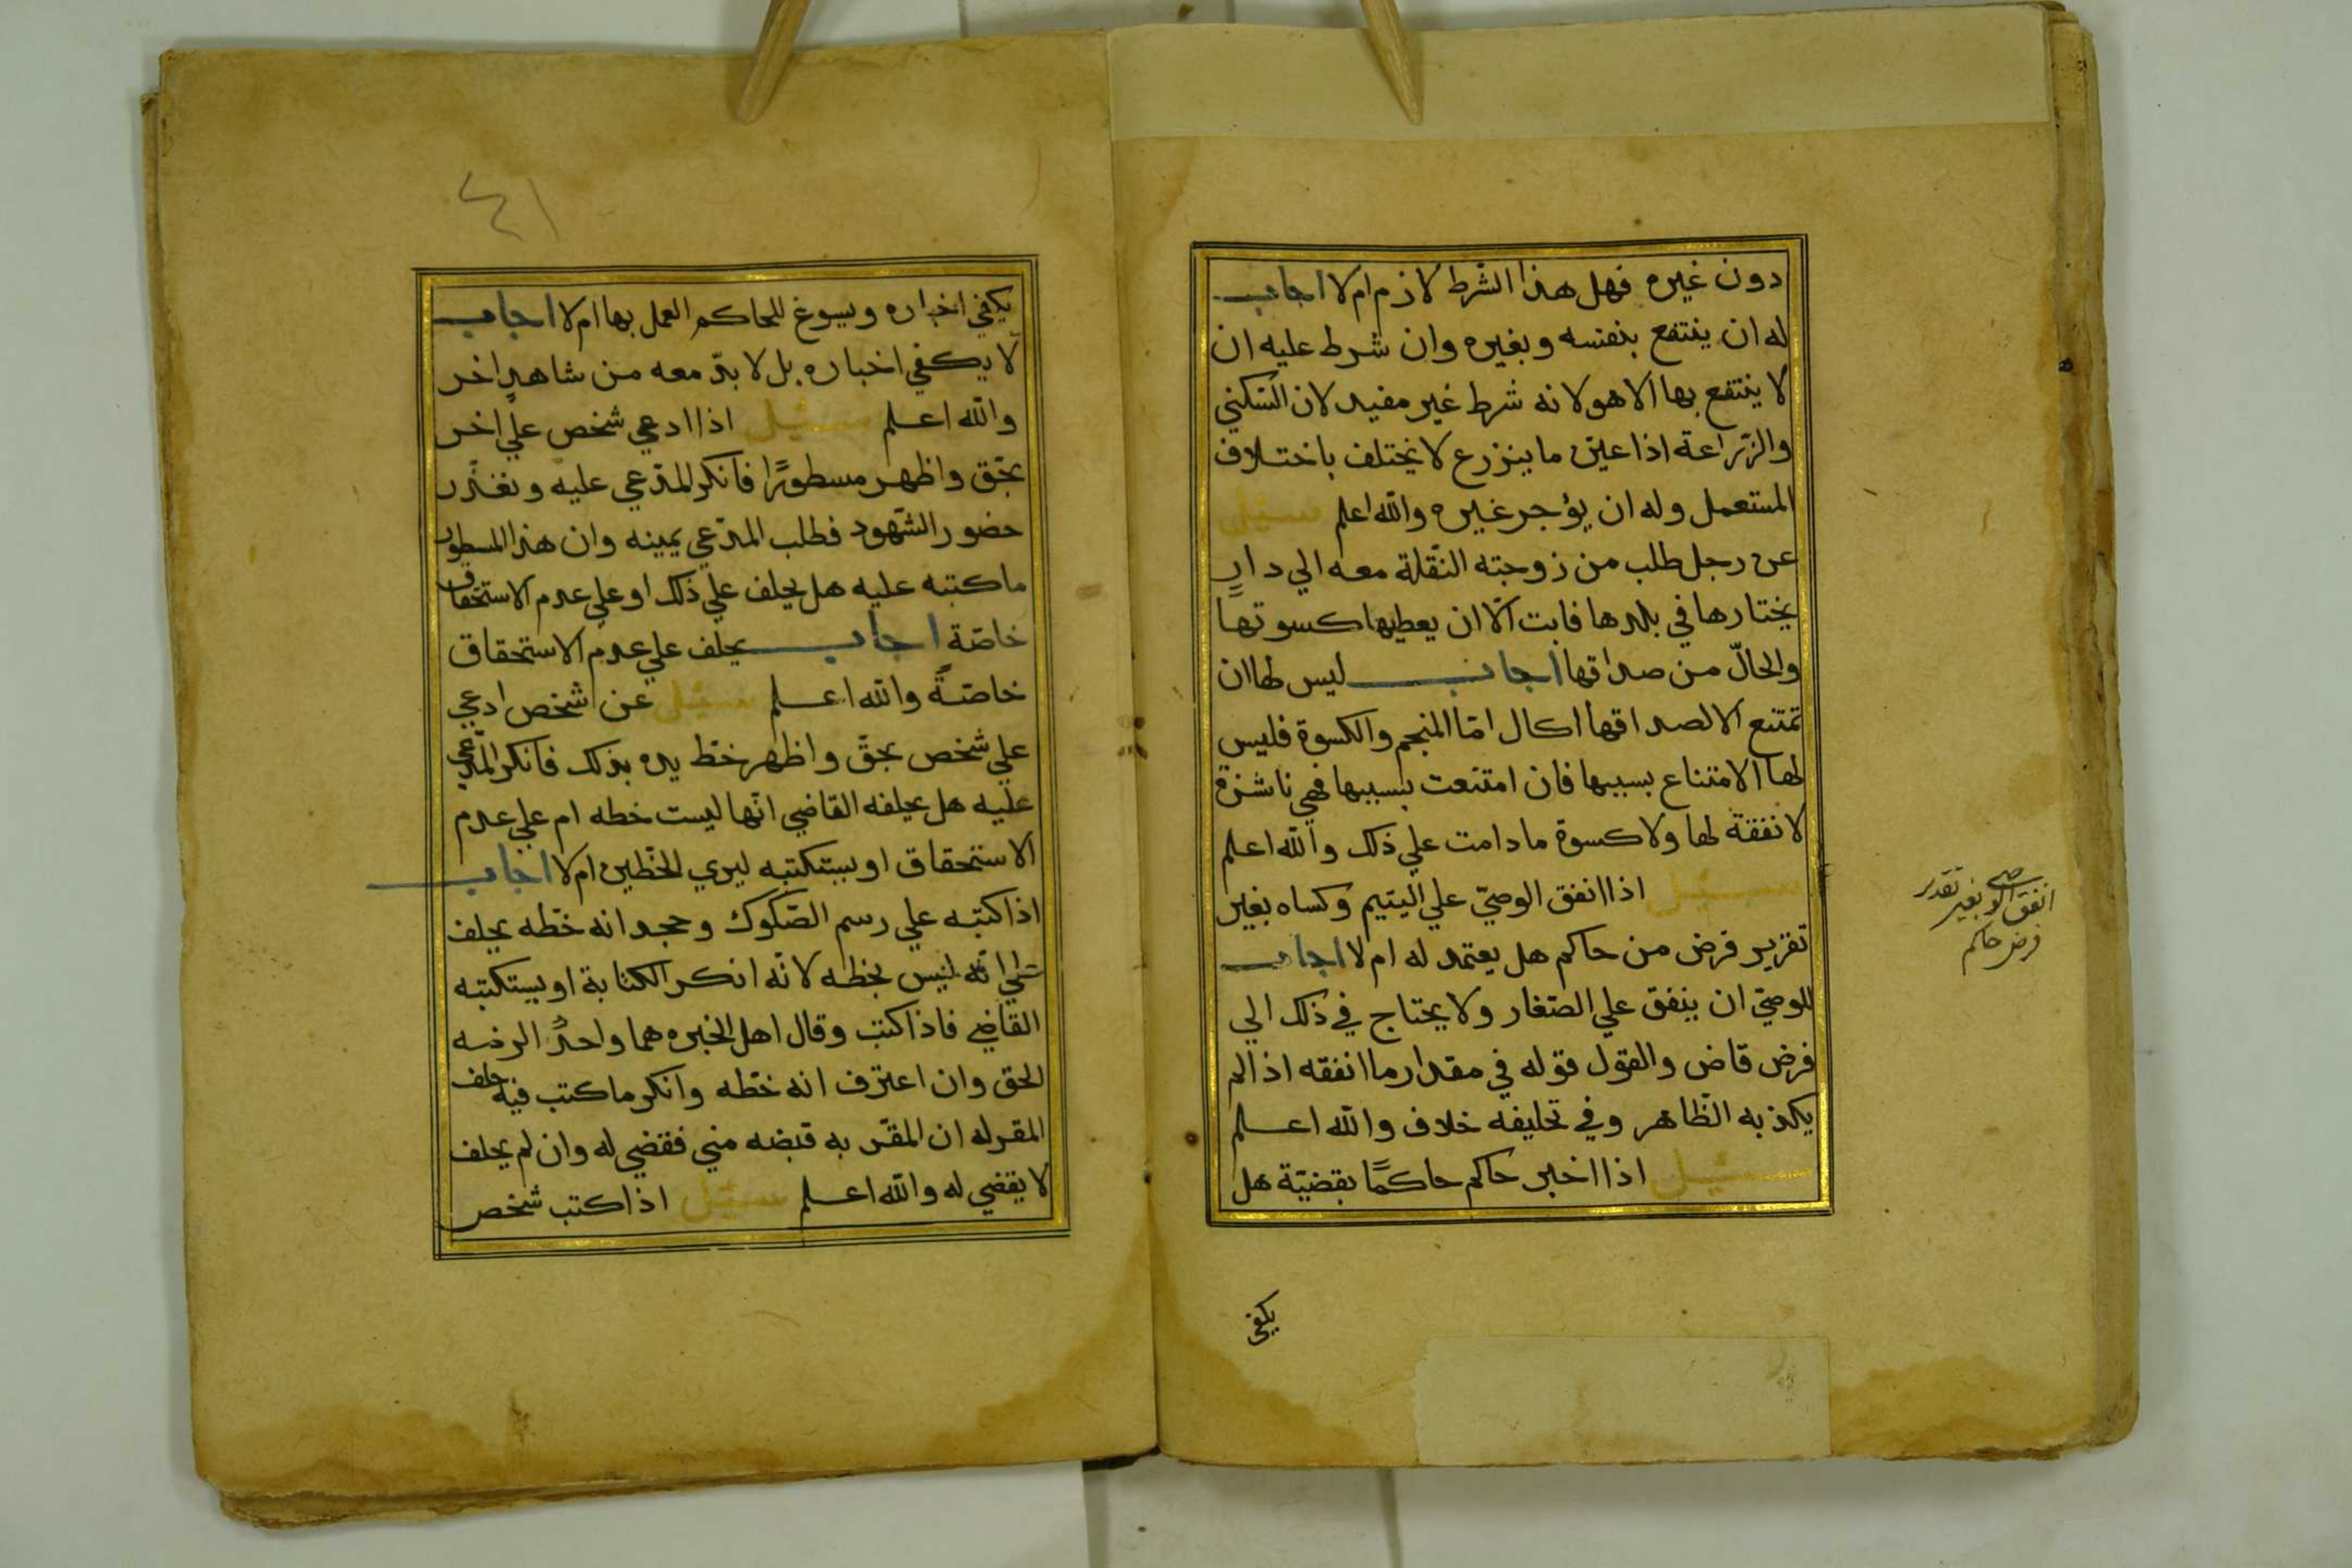 دون غيره فهل هذا الشرط لازم ام لا اجاب
له ان ينتفع بنفسه وبغيره وان شرط عليه ان
لا ينتفع بها الا هو لانه شرط غير مفيد لان السّكني
والزّراعة اذا عيّن ما ينزرع لا يختلف باختلاف
المستعمل وله ان يؤجر غيره والله اعلم سئل
عن رجل طلب من زوجته النّقلة معه الي دارٍ
يختارها في بلدها فابت الّا ان يعطيها كسوتها
والحالّ من صداقها اجاب ليس لها ان
تمتنع الا لصداقها الحال امّا المنجم والكسوة فليس
لها الامتناع بسببها فان امتنعت بسببها فهي ناشزة
لا نفقة لها ولا كسوة ما دامت علي ذلك والله اعلم
سئل اذا انفق الوصيّ علي اليتيم وكساه بغير
تقرير فرض من حاكم هل يعتمد له ام لا اجاب
للوصيّ ان ينفق علي الصّغار ولا يحتاج في ذلك الي
فرض قاض والقول قوله في مقدار ما انفقه اذا لم
يكذبه الظّاهر وفي تحليفه خلاف والله اعلم
سئل اذا اخبر حاكم حاكمًا بقضيّة هل
يكفي
انفق الوصي بغير تقدير
فرض حاكم
٤١
يكفي اخباره ويسوغ للحاكم العمل بها ام لا اجاب
لا يكفي اخباره بل لا بدّ معه من شاهدٍ اخر
والله اعلم سئل اذا ادعي شخص علي اخر
بحّق واظهر مسطورًا فانكر المدّعي عليه وتعذّر
حضور الشّهود فطلب المدّعي يمينه وان هذا المسطور
ما كتبه عليه هل يحلف علي ذلك او علي عدم الاستحقاق
خاصّة اجاب يحلف علي عدم الاستحقاق
خاصّةً والله اعلم سئل عن شخص ادعي
علي شخص بحّق واظهر خطّ يده بذلك فانكر المدّعي
عليه هل يحلفه القاضي انّها ليست خطه ام علي عدم
الاستحقاق او يستكتبه ليري الخطّين ام لا اجاب
اذا كتبه علي رسم الصّكوك وجحد انه خطّه يحلف
علي انّه ليس بخطه لانّه انكر الكتابة او يستكتبه
القاضي فاذا كتب وقال اهل الخبره هما واحدٌ الزمه
الحق وان اعترف انه خطّه وانكر ما كتب فيه حلف
المقر له ان المقرّ به قبضه مني فقضي له وان لم يحلف
لا يقضي له والله اعلم سئل اذا كتب شخص